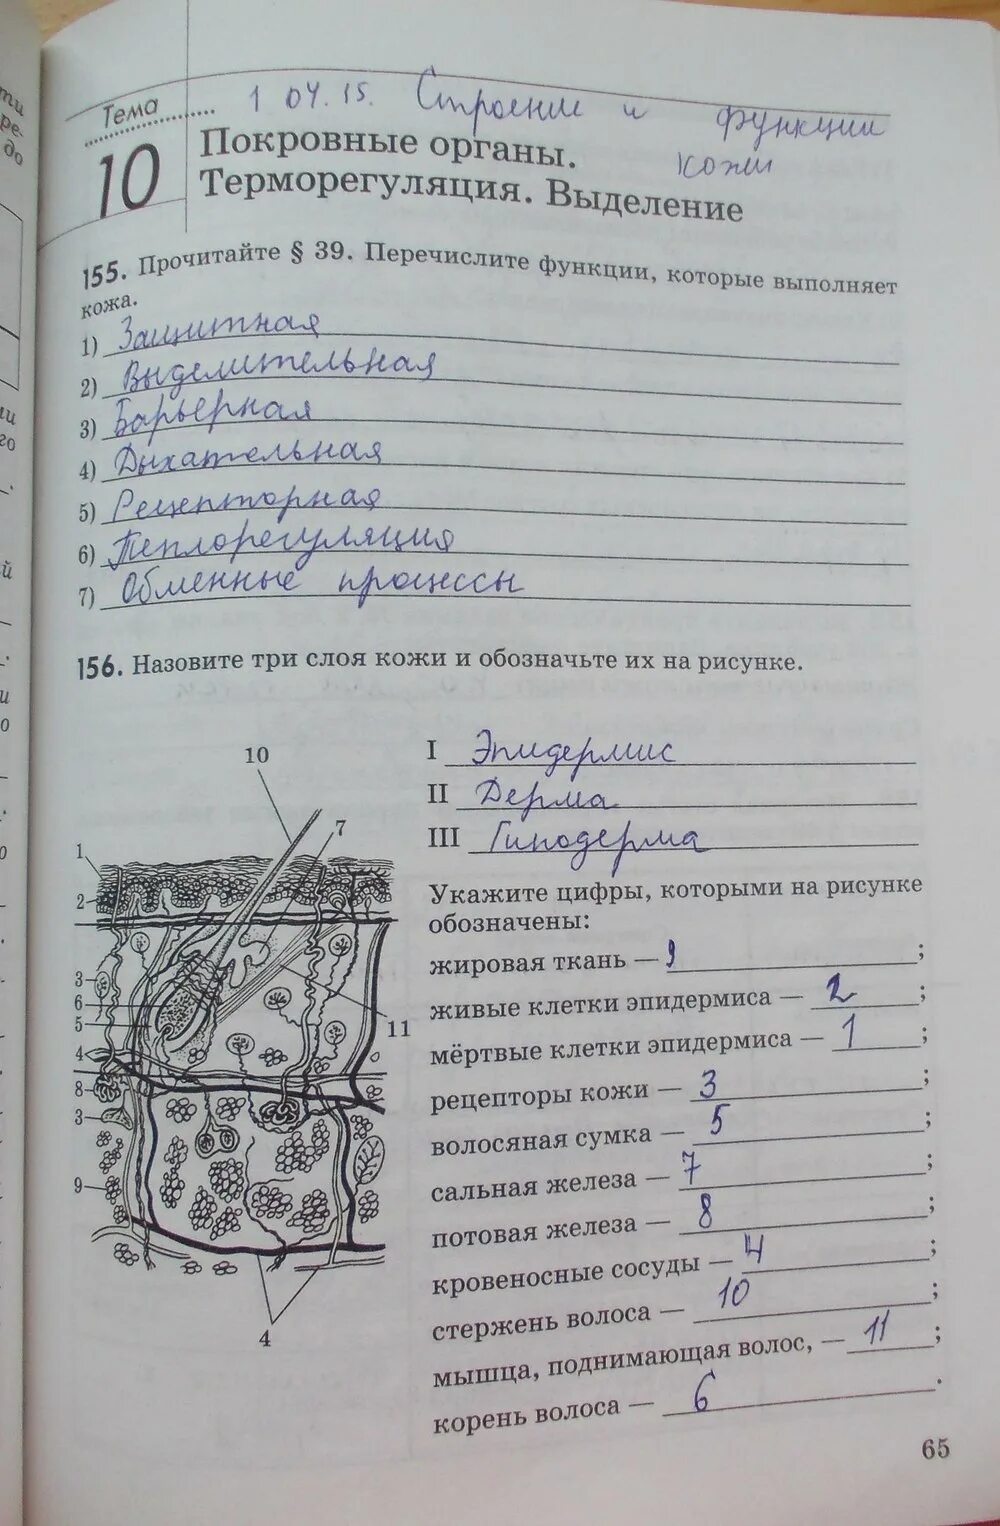 Тема
10
1 04.15. Строение и функции
кожи
Покровные органы.
Терморегуляция. Выделение
155. Прочитайте § 39. Перечислите функции, которые выполняет
кожа.
1) Защитная
2) Выделительная
3) Барьерная
4) Дыхательная
5) Рецепторная
6) Теплорегуляция
7) Обменные процессы
156. Назовите три слоя кожи и обозначьте их на рисунке.
I Эпидермис
II Дерма
III Гиподерма
10
7
1
2
3
6
5
11
4
8
3
9
4
Укажите цифры, которыми на рисунке
обозначены:
жировая ткань — 9 ;
живые клетки эпидермиса — 2 ;
мёртвые клетки эпидермиса — 1 ;
рецепторы кожи — 3 ;
волосяная сумка — 5 ;
сальная железа — 7 ;
потовая железа — 8 ;
кровеносные сосуды — 4 ;
стержень волоса — 10 ;
мышца, поднимающая волос, — 11 ;
корень волоса — 6 .
65